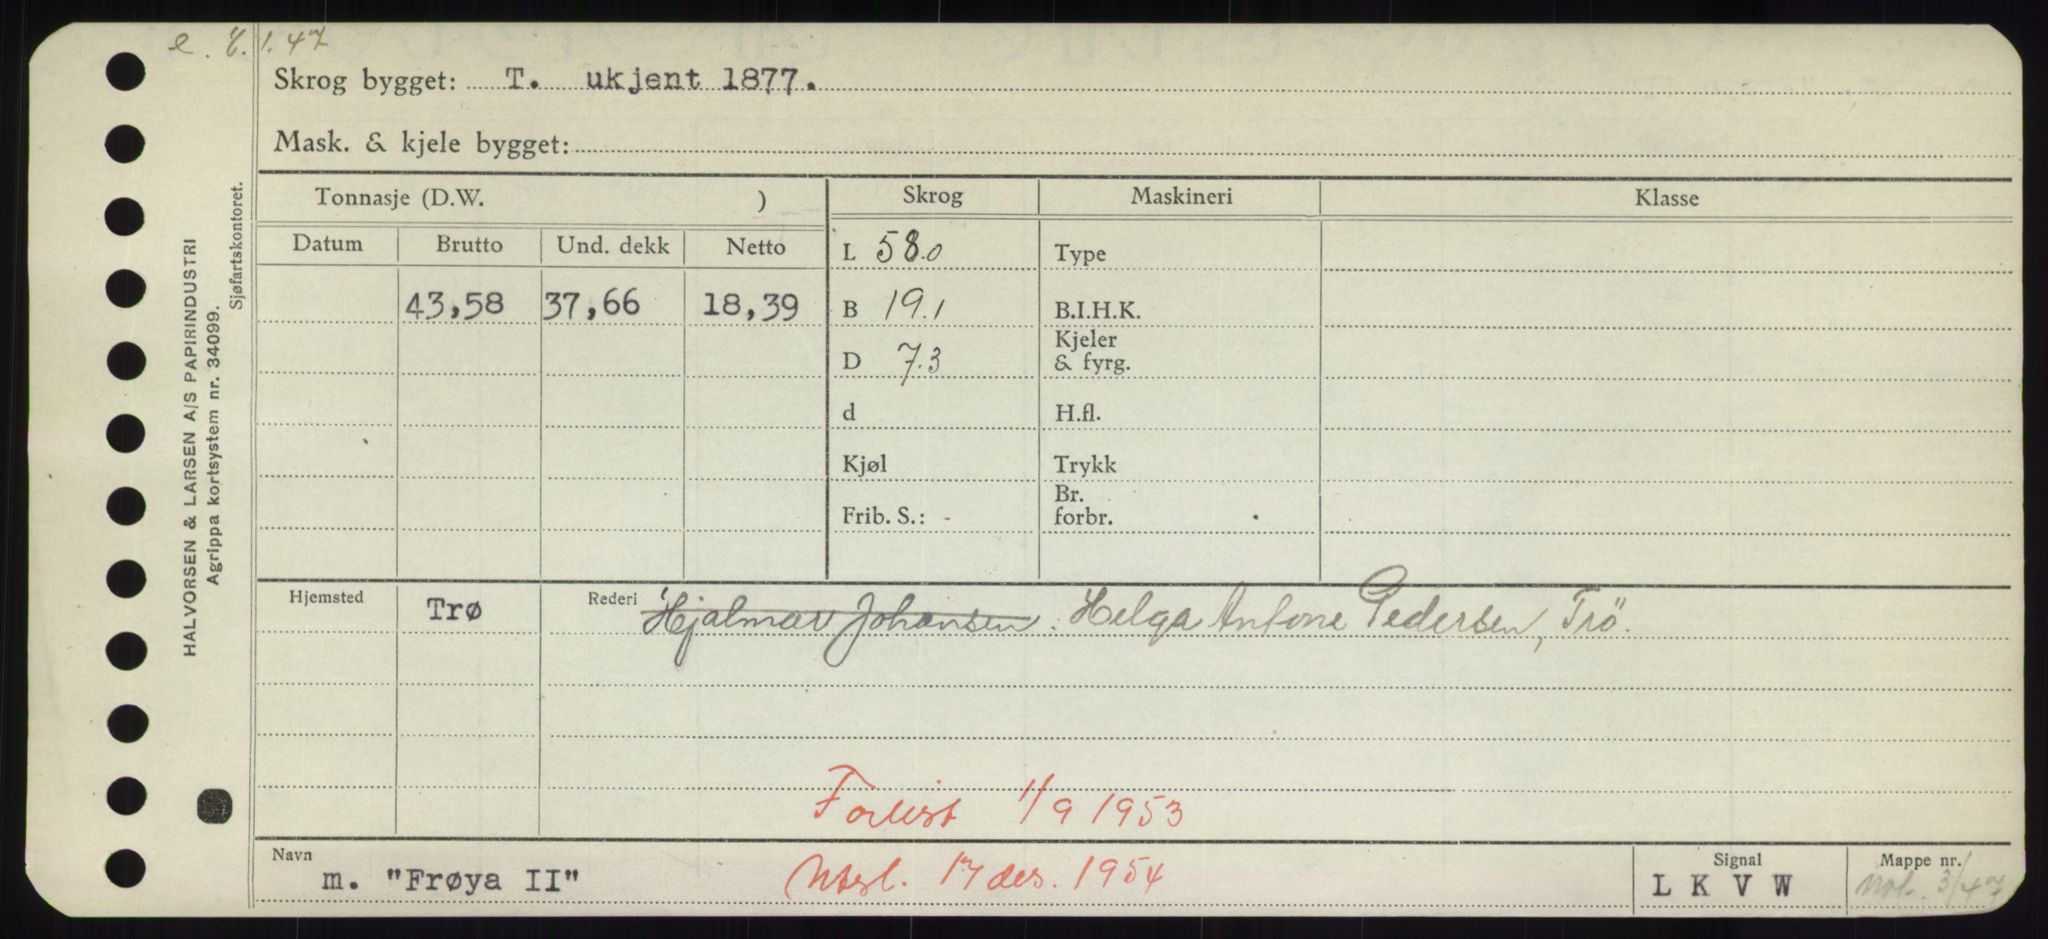 e. 7.1.47
Skrog bygget: T. ukjent 1877.
Mask. & kjele bygget:
HALVORSEN & LARSEN A/S PAPIRINDUSTRI
Agrippa kortsystem nr. 34099.
Sjøfartskontoret.
Tonnasje (D.W. ) Skrog Maskineri Klasse
Datum Brutto Und. dekk Netto L 58.0 Type
43,58 37,66 18,39 B 19.1 B.I.H.K.
D 7.3 Kjeler & fyrg.
d H.fl.
Kjøl Trykk
Frib. S.: - Br. forbr.
Hjemsted Trø Rederi Hjalmar Johansen. Helga Antone Pedersen, Trö.
Forlist 11/9 1953
Navn m. "Frøya II" Utsl. 17 des. 1954 Signal LKVW Mappe nr. not. 3/47